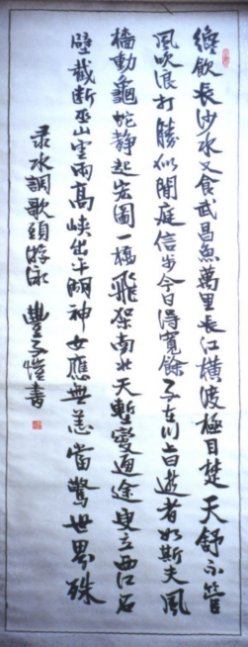 纔飲長沙水又食武昌魚萬里長江橫渡極目楚天舒不管
風吹浪打勝似閑庭信步今日得寬餘子在川上曰逝者如斯夫風
檣動龜蛇靜起宏圖一橋飛架南北天塹變通途更立西江石
壁截斷巫山雲雨高峽出平湖神女應無恙當驚世界殊
录水調歌頭游泳 豐子愷書